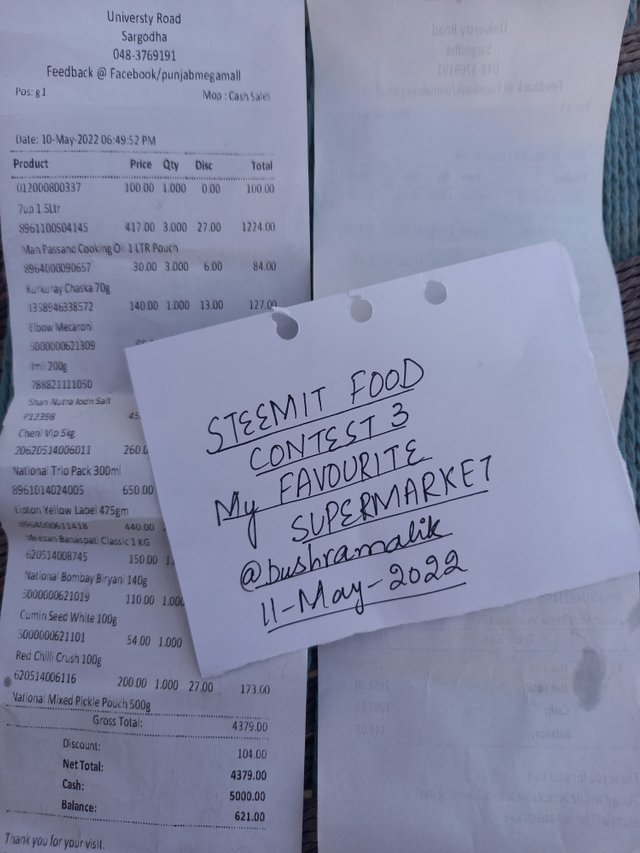 Universty Road
Sargodha
048-3769191
Feedback @ Facebook/punjabmegamall
Pos: g1 Mop : Cash Sales
Date: 10-May-2022 06:49:52 PM
Product Price Qty Disc Total
012000800337 100.00 1.000 0.00 100.00
7up 1.5Ltr
8961100504145 417.00 3.000 27.00 1224.00
Man Passand Cooking Oil 1 LTR Pouch
8964000090657 30.00 3.000 6.00 84.00
Kurkuray Chaska 70g
1358946338572 140.00 1.000 13.00 127.00
Elbow Mecaroni
5000000621309
Imli 200g
788821111050
Shan Nutra Iodn Salt
P12398 45
Cheni Vip 5kg
20620514006011 260.0
National Trio Pack 300ml
8961014024005 650.00
Lipton Yellow Label 475gm
8964000611418 440.00
Meezan Banaspati Classic 1 KG
620514008745 150.00
National Bombay Biryani 140g
5000000621019 110.00 1.000
Cumin Seed White 100g
5000000621101 54.00 1.000
Red Chilli Crush 100g
620514006116 200.00 1.000 27.00 173.00
National Mixed Pickle Pouch 500g
Gross Total: 4379.00
Discount: 104.00
Net Total: 4379.00
Cash: 5000.00
Balance: 621.00
Thank you for your visit.
STEEMIT FOOD
CONTEST 3
My FAVOURITE
SUPERMARKET
@bushramalik
11-May-2022